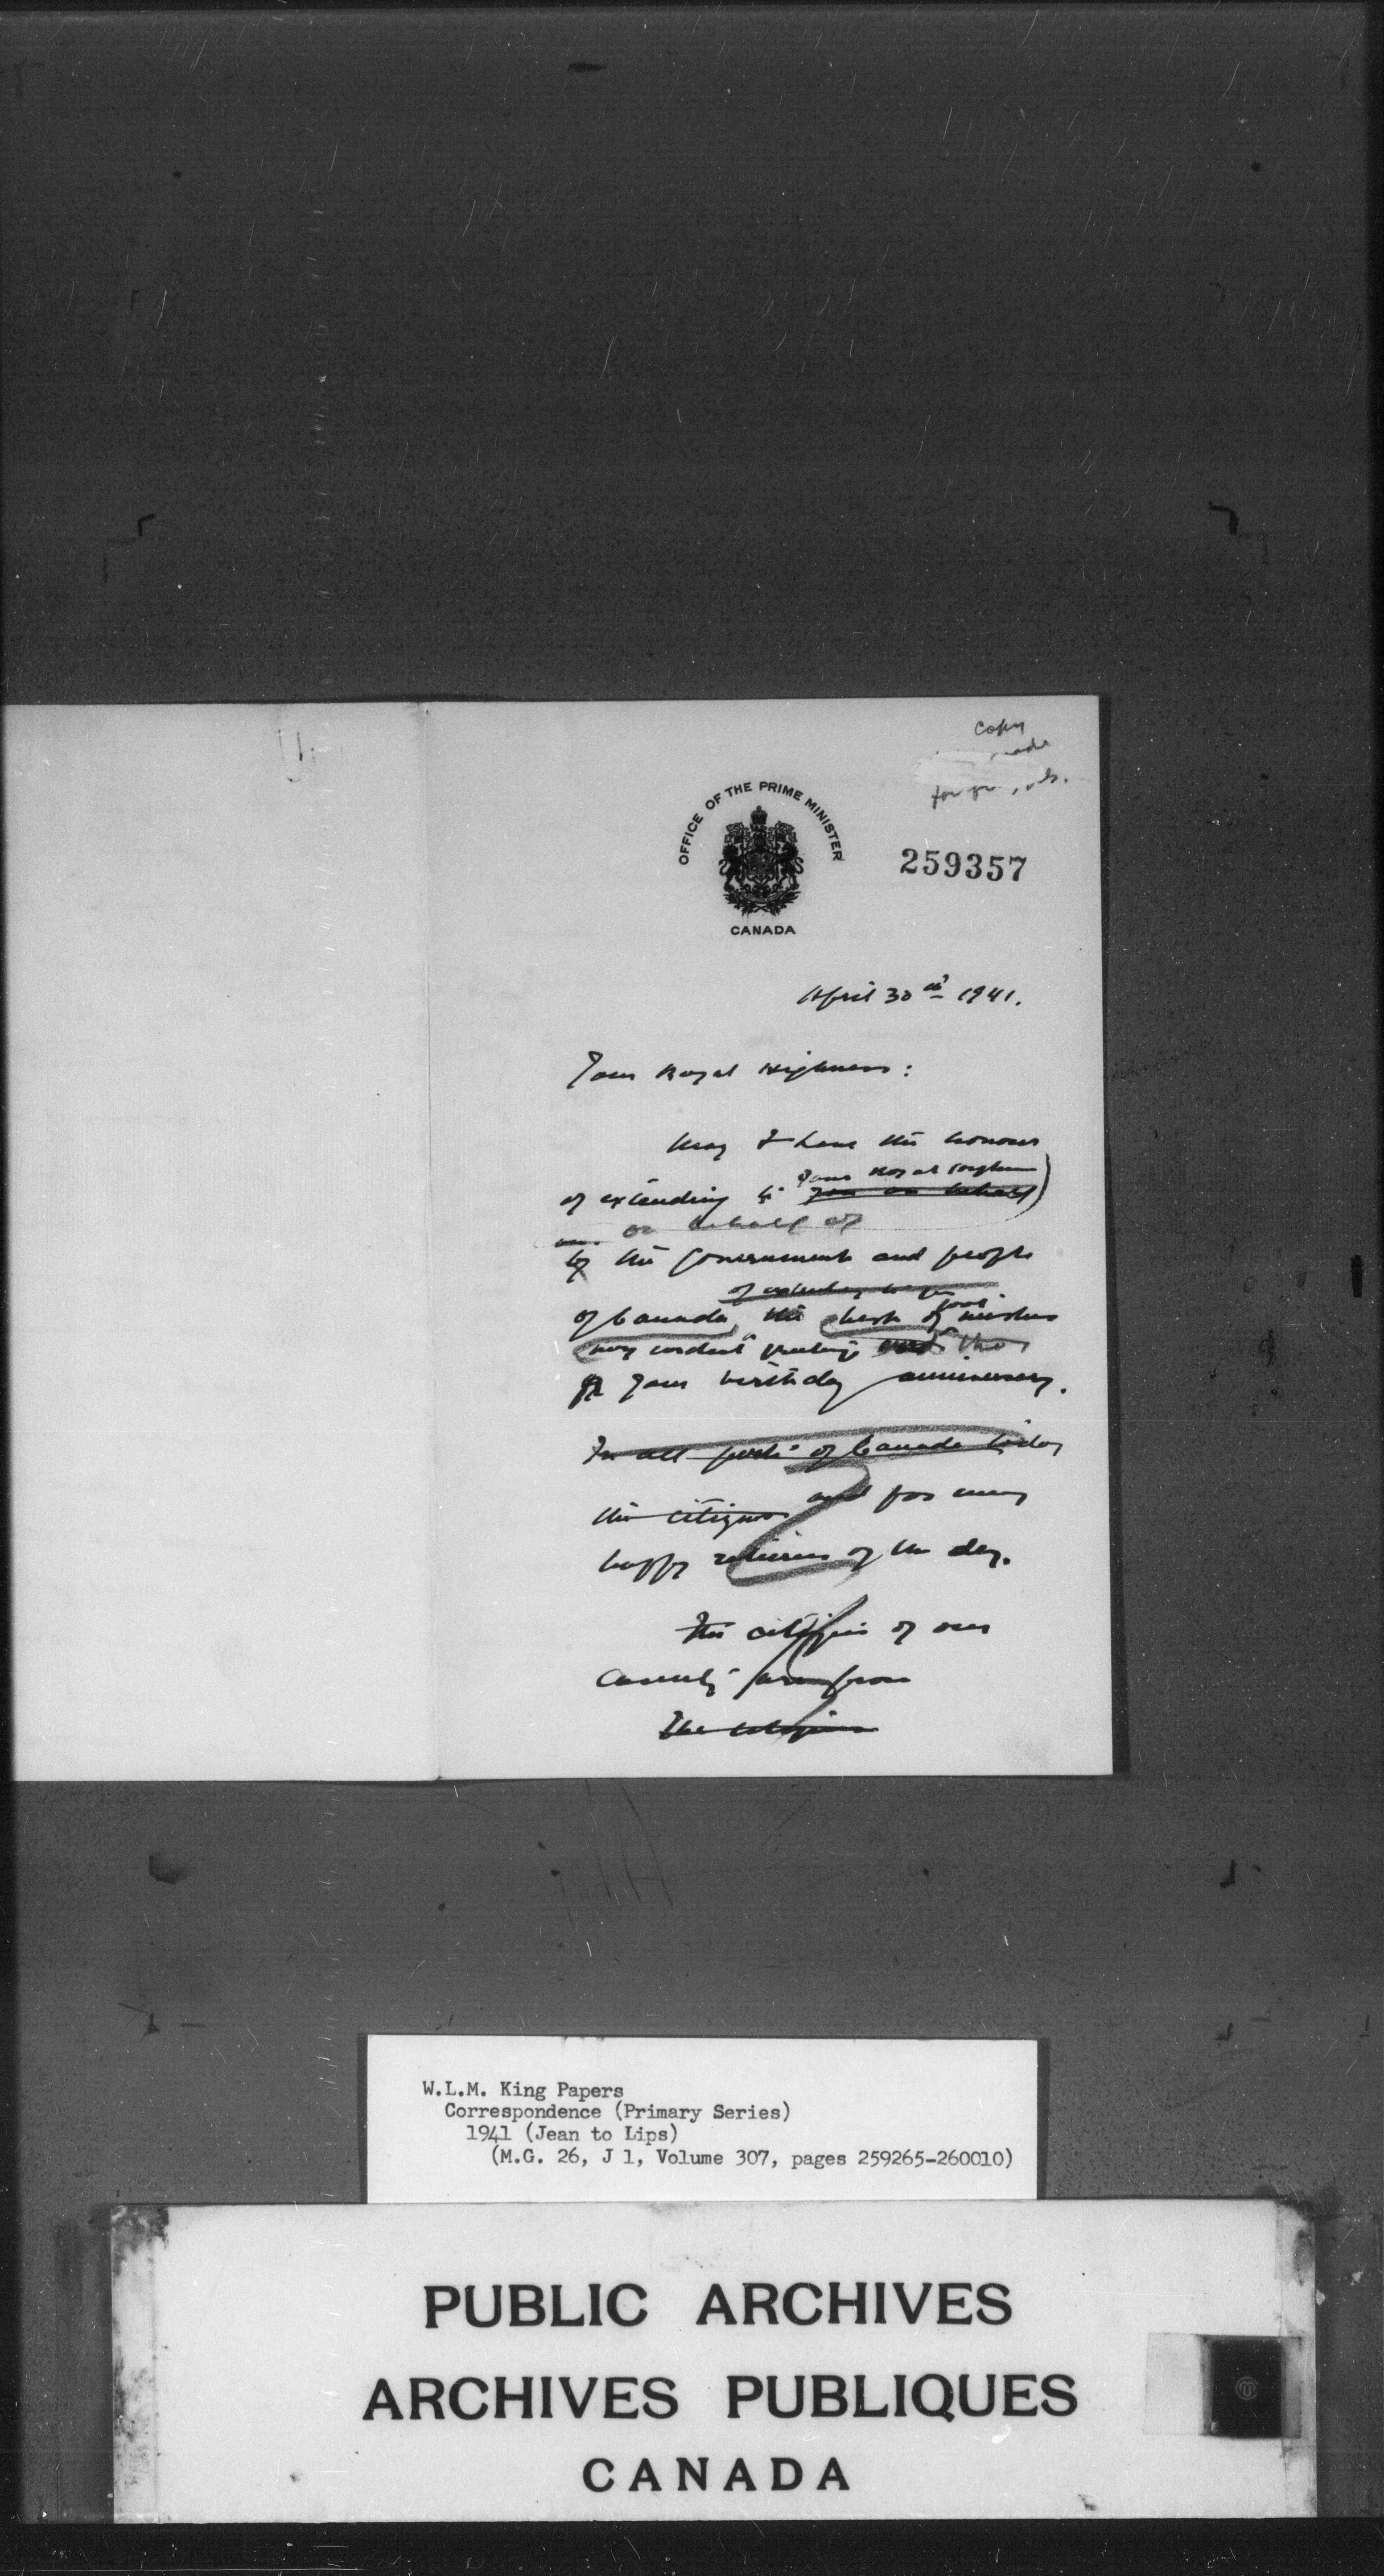 copy
made
OFFICE OF THE PRIME MINISTER
CANADA
259357
April 30th 1941.
Your Royal Highness:
May I have the honour
Your Royal Highness
of extending to you on behalf
on behalf of
by the Government and people
of extending to you
of Canada, the best of good wishes
very cordial greetings and
for your birthday anniversary.
In all parts of Canada today
the citizens and for many
happy returns of the day.
The citizens of our
country
The citizens
W.L.M. King Papers
Correspondence (Primary Series)
1941 (Jean to Lips)
(M.G. 26, J 1, Volume 307, pages 259265-260010)
PUBLIC ARCHIVES
ARCHIVES PUBLIQUES
CANADA